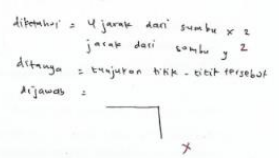 diketahui = 4 jarak dari sumbu x 2
jarak dari sombu y 2
ditanya = tunjukan titik - titik tersebut
dijawab =
x